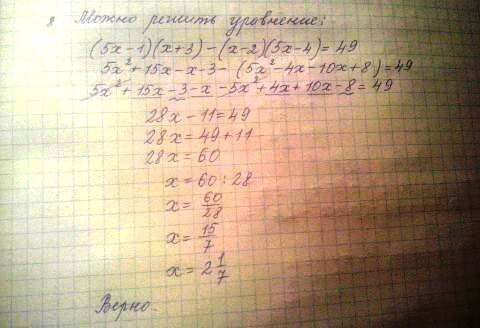 8 Можно решить уравнение:
(5x-1)(x+3)-(x-2)(5x-4)=49
5x²+15x-x-3-(5x²-4x-10x+8)=49
5x²+15x-3-x-5x²+4x+10x-8=49
28x-11=49
28x=49+11
28x=60
x=60:28
x=60/28
x=15/7
x=2 1/7
Верно.